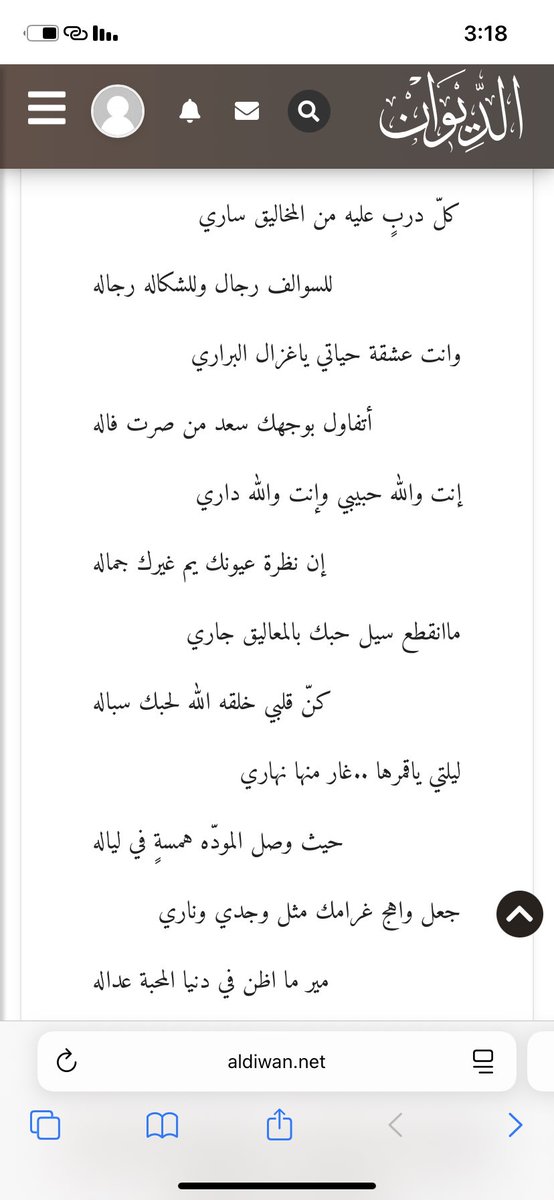 3:18
الدِّيوَانْ
كلّ دربٍ عليه من المخاليق ساري
للسوالف رجال وللشكاله رجاله
وانت عشقة حياتي ياغزال البراري
أتفاول بوجهك سعد من صرت فاله
إنت والله حبيبي وإنت والله داري
إن نظرة عيونك يم غيرك جماله
ماانقطع سيل حبك بالمعاليق جاري
كنّ قلبي خلقه الله لحبك سباله
ليلتي ياقمرها ..غار منها نهاري
حيث وصل المودّه همسةٍ في لياله
جعل واهج غرامك مثل وجدي وناري
مير ما اظن في دنيا المحبة عداله
aldiwan.net